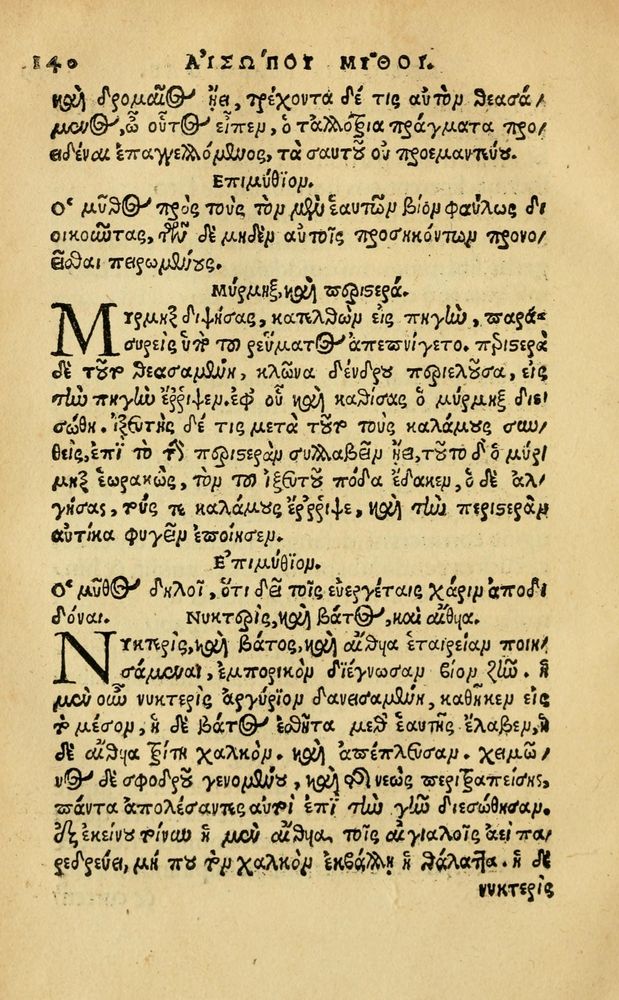 140 ΑἸΣΩ΄ΠΟΥ ΜΥ͂ΘΟΙ.
καὶ δρομαῖος ᾔει, τρέχοντα δέ τις αὐτὸν θεασά/
μενος, ὦ οὗτος εἶπεν, ὁ τἀλλότρια πράγματα προ/
ειδέναι ἐπαγγελλόμενος, τὰ σαυτοῦ οὐ προεμαντεύου.
Ἐπιμύθιον.
Ὁ μῦθος πρὸς τοὺς τὸν μὲν ἑαυτῶν βίον φαύλως δι
οικοῦντας, τῶν δὲ μηδὲν αὐτοῖς προσηκόντων προνο/
εῖσθαι πειρωμένους.
Μύρμηξ, καὶ περιστερά.
Μύρμηξ διψήσας, κατελθὼν εἰς πηγὴν, παρα/
συρεὶς ὑπὸ τοῦ ῥεύματος ἀπεπνίγετο. περιστερὰ
δὲ τοῦτο θεασαμένη, κλῶνα δένδρου περιελοῦσα, εἰς
τὴν πηγὴν ἔῤῥιψεν. ἐφ᾽ οὗ καὶ καθίσας ὁ μύρμηξ διε/
σώθη. ἰξευτὴς δέ τις μετὰ τοῦτο τοὺς καλάμους συν/
θεὶς, ἐπὶ τὸ τὴν περιστερὰν συλλαβεῖν ᾔει, τοῦτο δ᾽ ὁ μύρ/
μηξ ἑωρακὼς, τὸν τοῦ ἰξευτοῦ πόδα ἔδακεν, ὁ δὲ ἀλ/
γήσας, τούς τε καλάμους ἔῤῥιψε, καὶ τὴν περιστερὰν
αὐτίκα φυγεῖν ἐποίησεν.
Ἐπιμύθιον.
Ὁ μῦθος δηλοῖ, ὅτι δεῖ τοῖς εὐεργέταις χάριν ἀποδι
δόναι. Νυκτερὶς, καὶ βάτος, καὶ αἴθυια.
Νυκτερὶς, καὶ βάτος, καὶ αἴθυια ἑταιρείαν ποιη/
σάμεναι, ἐμπορικὸν διέγνωσαν βίον ζῆν. ἡ
μὲν οὖν νυκτερὶς ἀργύριον δανεισαμένη, καθῆκεν εἰς
τὸ μέσον, ἡ δὲ βάτος ἐσθῆτα μεθ᾽ ἑαυτῆς ἔλαβεν, ἡ
δὲ αἴθυια τρίτη χαλκὸν. καὶ ἀπέπλευσαν. χειμῶ/
νος δὲ σφοδροῦ γενομένου, καὶ τῆς νεὼς περιτραπείσης,
πάντα ἀπολέσαντες αὐτοὶ ἐπὶ τὴν γῆν διεσώθησαν.
ἐξ ἐκείνου τοίνυν ἡ μὲν αἴθυια τοῖς αἰγιαλοῖς ἀεὶ πα/
ρεδρεύει, μή που τὸν χαλκὸν ἐκβάλλῃ ἡ θάλαττα. ἡ δὲ
νυκτερὶς